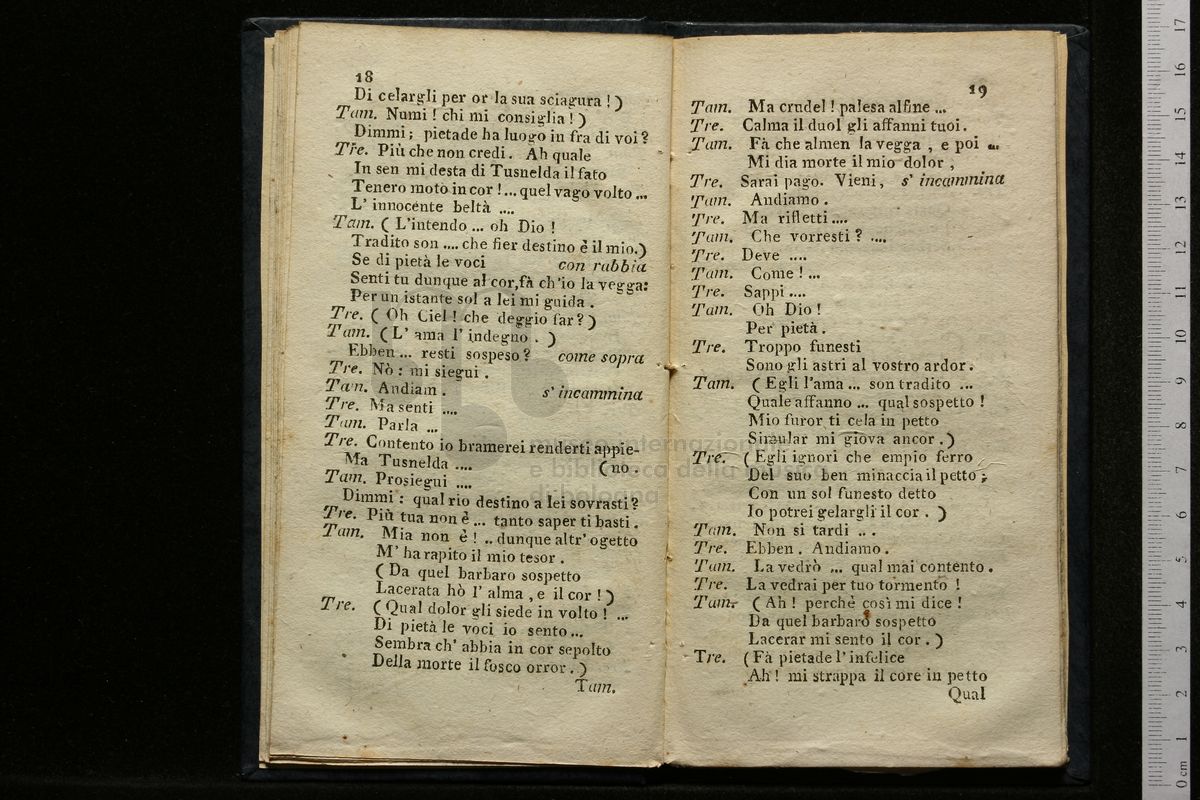 18
Di celargli per or la sua sciagura !)
Tam. Numi ! chi mi consiglia !)
Dimmi ; pietade ha luogo in fra di voi ?
Tre. Più che non credi. Ah quale
In sen mi desta di Tusnelda il fato
Tenero moto in cor !... quel vago volto ...
L' innocente beltà ....
Tam. ( L'intendo ... oh Dio !
Tradito son .... che fier destino è il mio.)
Se di pietà le voci con rabbia
Senti tu dunque al cor, fà ch'io la vegga:
Per un istante sol a lei mi guida .
Tre. ( Oh Ciel ! che deggio far ? )
Tam. ( L' ama l' indegno . )
Ebben ... resti sospeso ? come sopra
Tre. Nò : mi siegui .
Tam. Andiam . s' incammina
Tre. Ma senti ....
Tam. Parla ...
Tre. Contento io bramerei renderti appie-
Ma Tusnelda .... (no .
Tam. Prosiegui ....
Dimmi : qual rio destino a lei sovrasti ?
Tre. Più tua non è ... tanto saper ti basti .
Tam. Mia non è ! .. dunque altr' ogetto
M' ha rapito il mio tesor .
( Da quel barbaro sospetto
Lacerata hò l' alma , e il cor ! )
Tre. ( Qual dolor gli siede in volto ! ...
Di pietà le voci io sento ...
Sembra ch' abbia in cor sepolto
Della morte il fosco orror . )
Tam.
19
Tam. Ma crudel ! palesa alfine ...
Tre. Calma il duol gli affanni tuoi .
Tam. Fà che almen la vegga , e poi ...
Mi dia morte il mio dolor ,
Tre. Sarai pago. Vieni , s' incammina
Tam. Andiamo .
Tre. Ma rifletti ....
Tam. Che vorresti ? ....
Tre. Deve ....
Tam. Come ! ...
Tre. Sappi ....
Tam. Oh Dio !
Per pietà .
Tre. Troppo funesti
Sono gli astri al vostro ardor .
Tam. ( Egli l'ama ... son tradito ...
Quale affanno ... qual sospetto !
Mio furor ti cela in petto
Simular mi giova ancor . )
Tre. ( Egli ignori che empio ferro
Del suo ben minaccia il petto ;
Con un sol funesto detto
Io potrei gelargli il cor . )
Tam. Non si tardi ...
Tre. Ebben . Andiamo .
Tam. La vedrò ... qual mai contento .
Tre. La vedrai per tuo tormento !
Tam. ( Ah ! perchè così mi dice !
Da quel barbaro sospetto
Lacerar mi sento il cor . )
Tre. ( Fà pietade l' infelice
Ah ! mi strappa il core in petto
Qual
museo internazionale
e biblioteca della musica
di bologna
0 cm 1 2 3 4 5 6 7 8 9 10 11 12 13 14 15 16 17